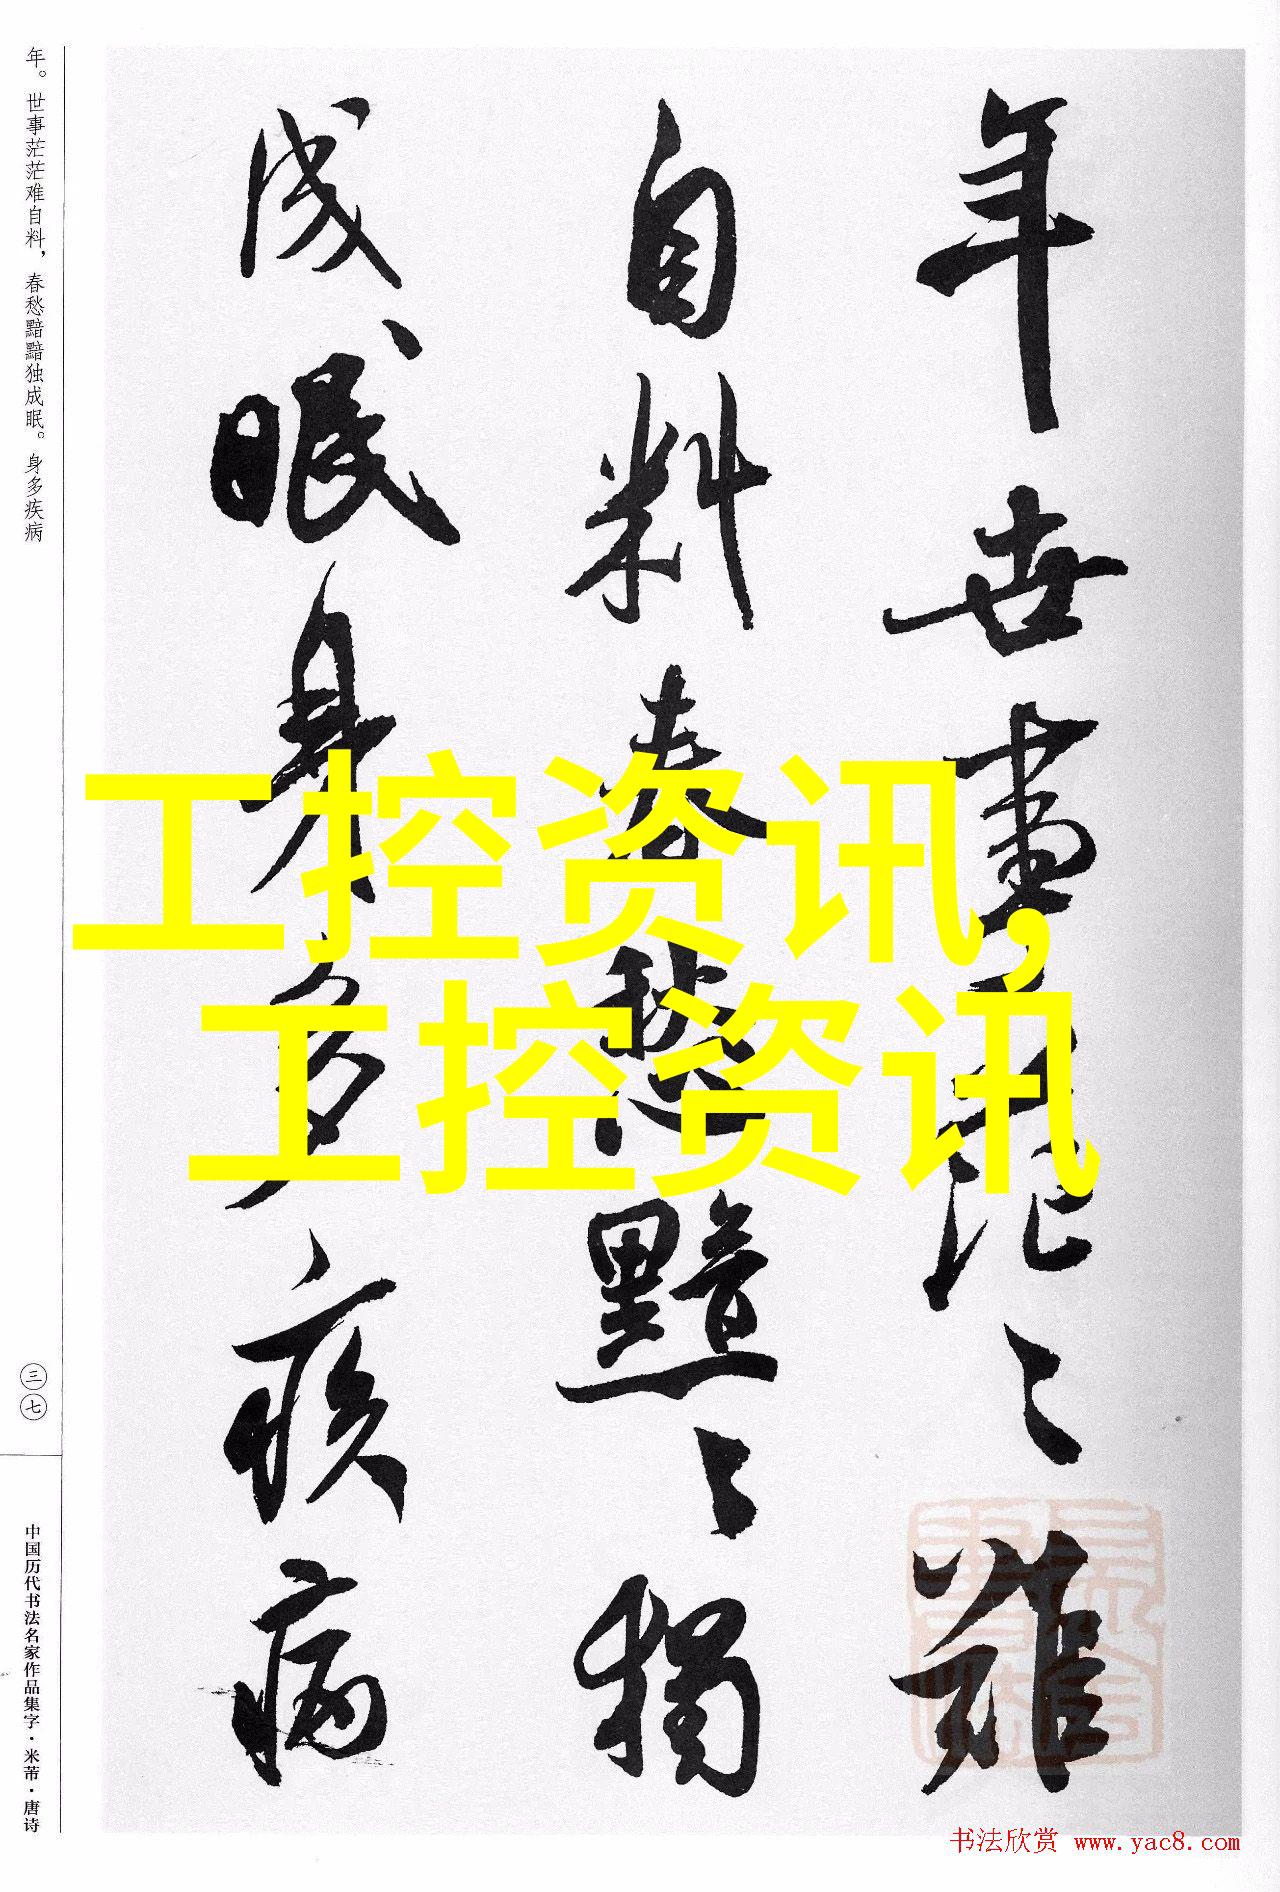 年世事茫〻難
自料春愁黯〻獨
成眠身多疾病
年。世事茫茫难自料，春愁黯黯独成眠。身多疾病
三七
中国历代书法名家作品集字·米芾·唐诗
工控资讯,
工控资讯
书法欣赏 www.yac8.com